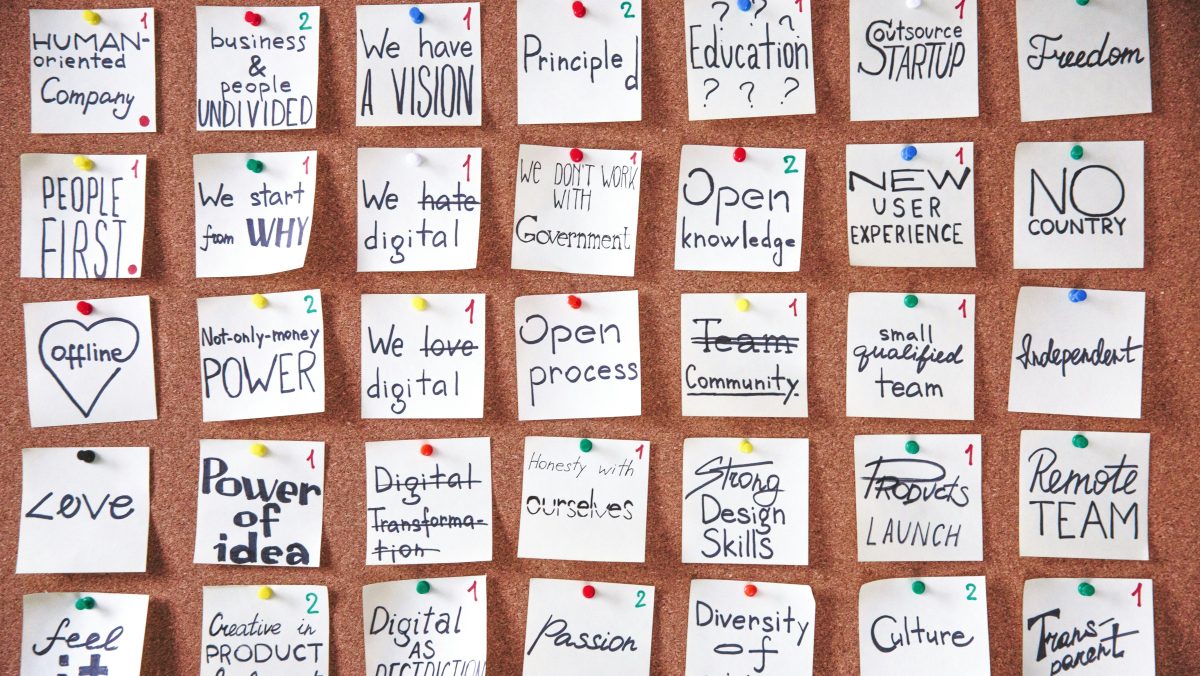 1
HUMAN-
oriented
Company
2
business
&
people
UNDIVIDED
1
We have
A VISION
2
Principled
1
? ? ?
Education
? ? ?
1
Outsource
STARTUP
Freedom
1
PEOPLE
FIRST
1
We start
from WHY
1
We hate
digital
1
We DON'T WORK
WITH
Government
2
Open
knowledge
1
NEW
USER
EXPERIENCE
NO
COUNTRY
offline
2
Not-only-money
POWER
1
We love
digital
Open
process
1
Team
Community
1
small
qualified
team
Independent
Love
1
Power
of
idea
Digital
Transforma-
tion
1
Honesty with
ourselves
Strong
Design
Skills
1
PRODUCTS
LAUNCH
REMOTE
TEAM
feel
it
2
Creative in
PRODUCT
1
Digital
AS
2
Passion
Diversity
of
2
Culture
1
Trans-
parent